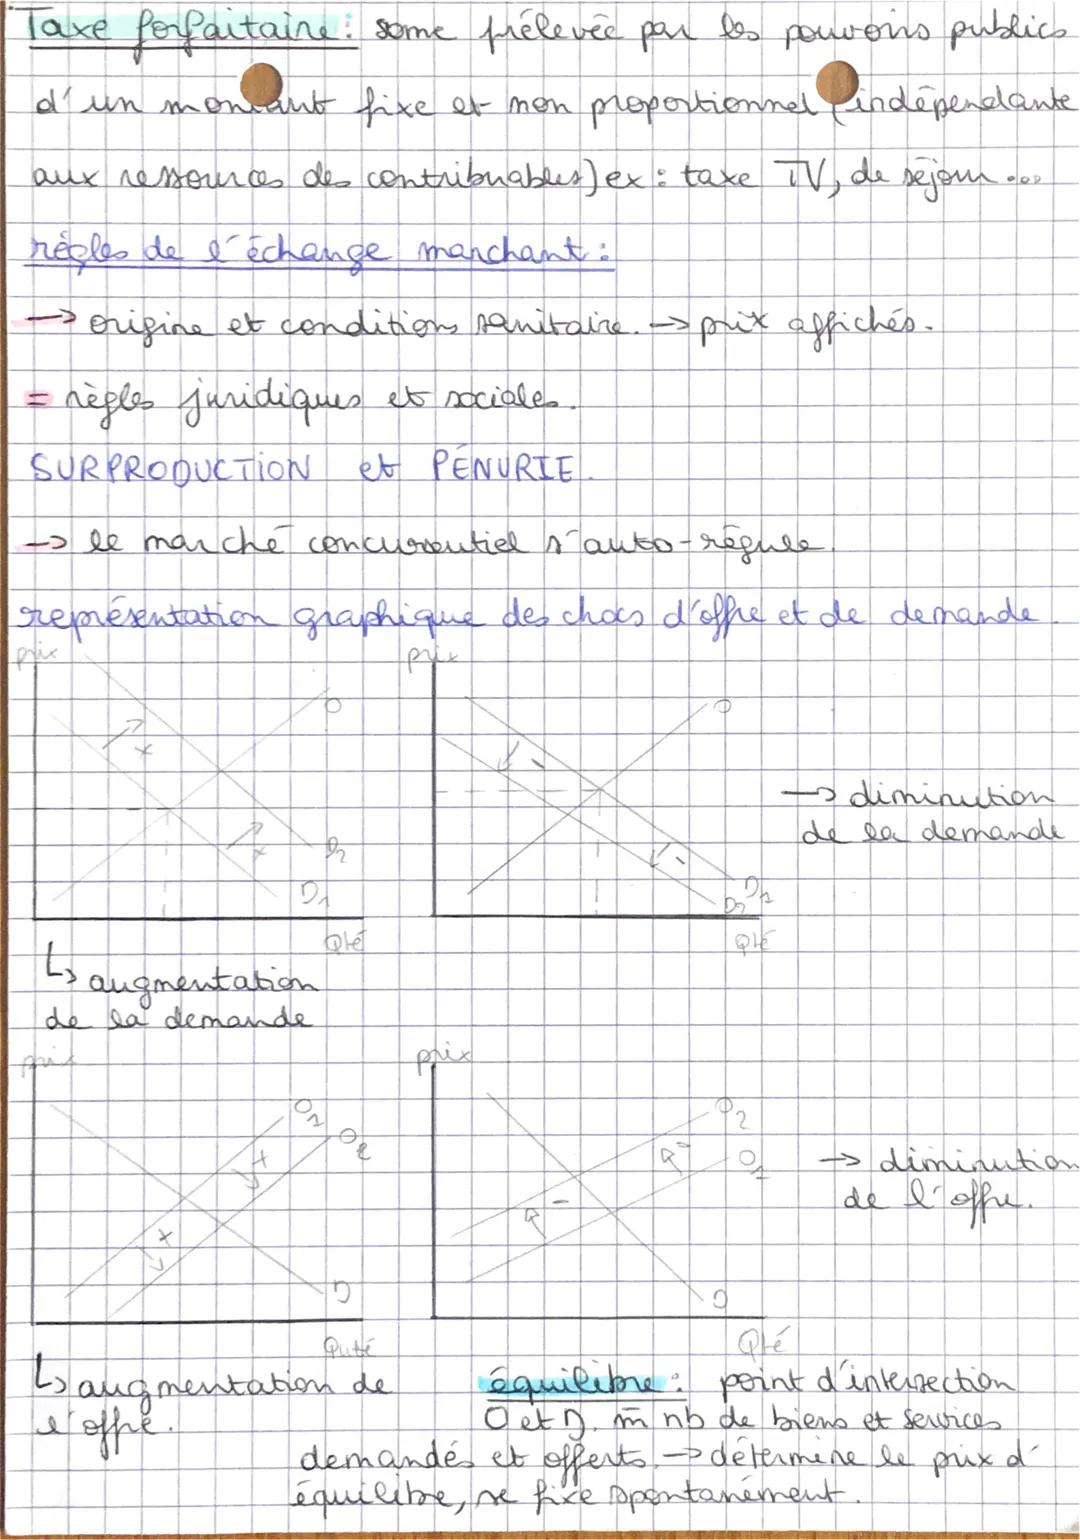 Taxe forfaitaire : some prélevée par les pouvoirs publics
d'un montant fixe et non proportionnel (indépendante
aux ressources des contribuables) ex : taxe TV, de séjour ...
règles de l'échange marchant :
→ origine et conditions sanitaire. → prix affichés.
= règles juridiques et sociales.
SURPRODUCTION et PÉNURIE.
→ le marché concurrentiel s'auto-régule.
représentation graphique des chocs d'offre et de demande.
prix
prix
O
O
+
-
→ diminution
de la demande
+
-
D2
D1
D1
D2
Qté
Qté
↳ augmentation
de la demande
prix
prix
O1
O2
O2
O1
+
-
→ diminution
de l'offre.
+
-
D
D
Quté
Qté
↳ augmentation de
l'offre.
équilibre : point d'intersection
O et D. m̄ nb de biens et services
demandés et offerts. → détermine le prix d'
équilibre, se fixe spontanément.